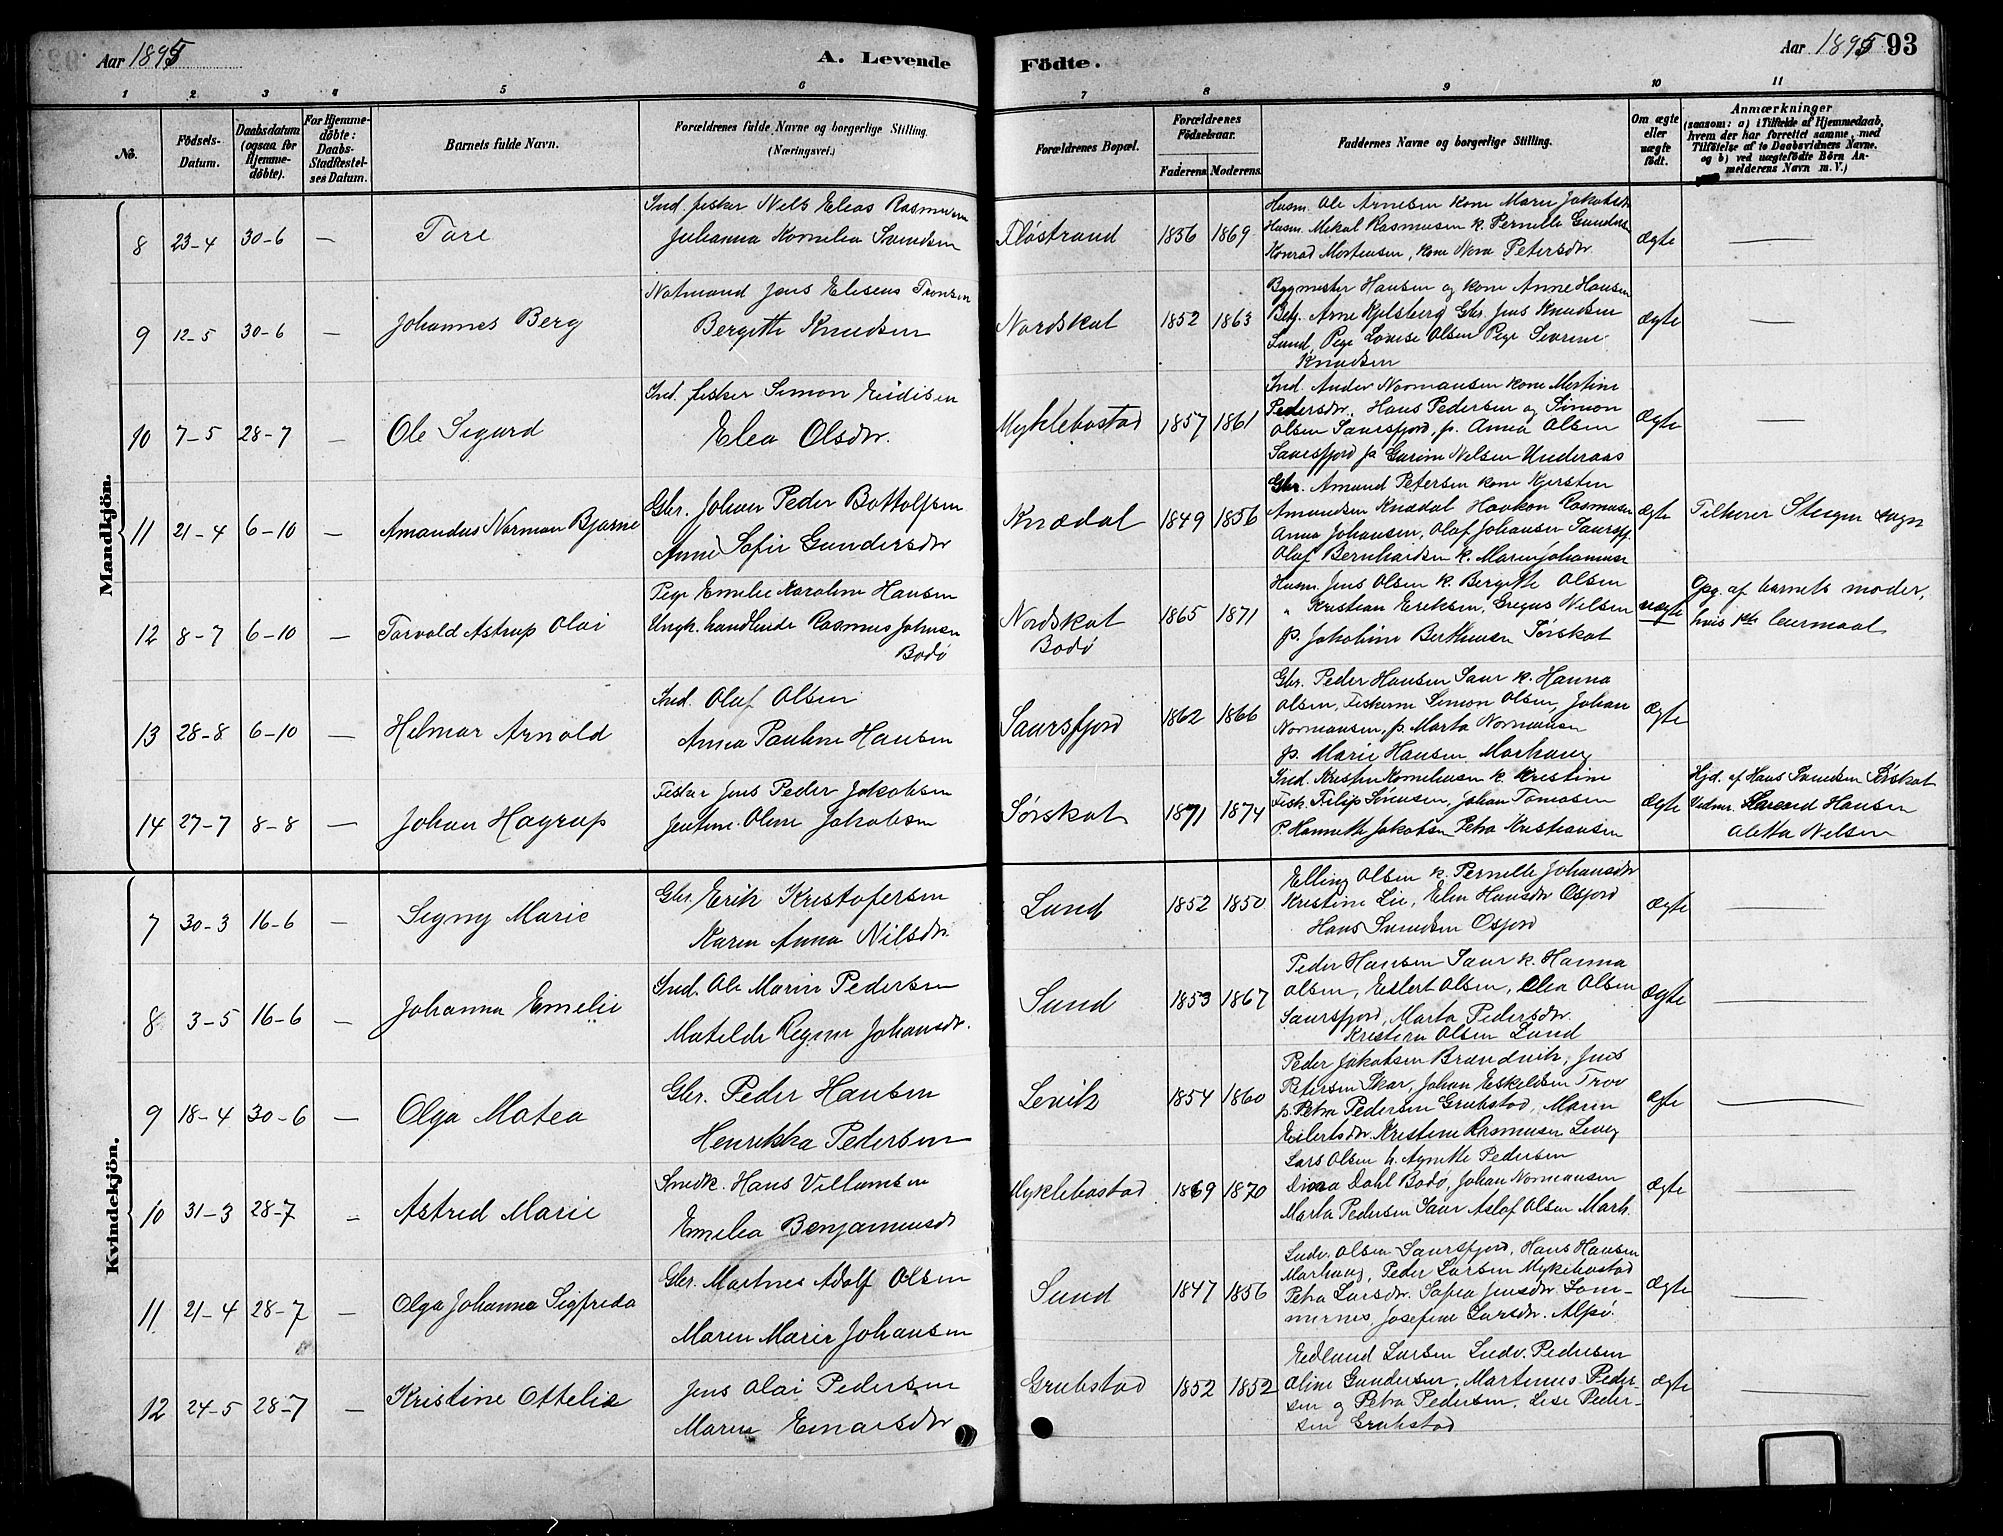 Aar 1895
A. Levende
Födte.
Aar 1895
93
1 2 3 4 5 6 7 8 9 10 11
No.
Födsels-Datum.
Daabsdatum (ogsaa for Hjemme-döbte).
For Hjemme-döbte: Daabs-Stadfæstel-ses Datum.
Barnets fulde Navn.
Forældrenes fulde Navne og borgerlige Stilling.
(Næringsvei.)
Forældrenes Bopæl.
Forældrenes Födselsaar.
Faderens Moderens.
Faddernes Navne og borgerlige Stilling.
Om ægte eller uægte födt.
Anmærkninger
(saasom: a) i Tilfælde af Hjemmedaab,
hvem der har forrettet samme, med
Tilföielse af to Daabsvidners Navne,
og b) ved uægtefödte Börn An-
melderens Navn m. V.)
Mandkjön.
8 23-4 30-6 — Tore
Ind. fisker Nels Elias Rasmussen
Julianna Kornelia Svendsen
Fløstrand 1836 1869
Husm. Ole Arnesen kone Maria Jakobsdr
Husm. Mikal Rasmusen k. Pernille Gundersen
Konrad Mortensen, kone Nora Petersdr.
Ægte —
9 12-5 30-6 — Johannes Berg
Notmand Jens Eliseus Tronsen
Bergitte Knudsen
Nordskot 1852 1863
Bygmester Hansen og kone Anne Hansen
Betj. Arne Kjelsberg Gbr. Jens Knudsen
Lund, Pige Lovise Olsen Pige Severine
Knudsen
Ægte —
10 7-5 28-7 — Ole Sigurd
Ind. fisker Simon Eidisen
Elea Olsdr.
Myklebostad 1857 1861
Ind. Ander Normansen kone Martine
Pedersdr. Hans Pedersen og Simon
Olsen Saursfjord, p. Anna Olsen
Saursfjord p. Gurine Nelsen Underaas
Ægte —
11 21-4 6-10 — Amandus Norman Bjarne
Gbr. Johan Peder Bottolfsen
Anne Sofie Gundersdr
Knædal 1849 1856
Gbr. Amund Petersen kone Kjersten
Amundsen Knædal Haakon Rasmusen
Anna Johansen, Olaf Johansen Saursfj.
Olaf Bernhardsen k. Maren Johannese
Ægte Tilhører Steigen sogn
12 8-7 6-10 — Torvald Astrup Olai
Pige Emelie Karoline Hansen
Ungk. handlende Rasmus Johnsen
Bodø
Nordskot
Bodø
1865 1871
Husm. Jens Olsen k. Bergitte Olsen
" Kristian Eriksen, Gregus Nelsen
p. Jakobine Bertheusen Sørskot
uægte
Opg. af barnets moder,
hvis 1ste leiermaal
13 28-8 6-10 — Helmar Arnold
Ind. Oluf Olsen
Anna Pauline Hansen
Saursfjord 1862 1866
Gbr. Peder Hansen Saur k. Hanna
Olsen, Fiskerne Simon Olsen, Johan
Normansen, p. Marta Normansen
p. Marie Hansen Marhaug
Ægte
14 27-7 8-8 — Johan Hagrup
Fisker Jens Peder Jakobsen
Jentine Oline Jakobsen
Sørskot 1871 1874
Ind. Kristen Korneliusen k. Kristine
Fisk. Filip Sørensen, Johan Tomasen
P. Hannette Jakobsen Petra Kristiansen
Ægte
Hjd. af Hans Svendsen Sørskot
Vidner. Havard Hansen
Aletta Nelsen
Kvindekjön.
7 30-3 16-6 — Signy Marie
Gbr. Erik Kristofersen
Karen Anna Nilsdr.
Lund 1852 1850
Elling Olsen k. Pernille Johansdr
Kristine Lie, Elen Hansdr Osfjord
Hans Svendsen Osfjord
Ægte —
8 3-5 16-6 — Johanna Emelie
Ind. Ole Marin Pedersen
Matilde Regine Johansdr.
Sund 1853 1867
Peder Hansen Saur k. Hanna
Olsen, Eilert Olsen, Elea Olsen
Saursfjord, Marta Pedersdr.
Kristian Olsen Lund
Ægte —
9 18-4 30-6 — Olga Matea
Gbr. Peder Hansen
Henrikka Pedersen
Levik 1854 1860
Peder Jakobsen Brændvik, Jens
Petersen Skar, Johan Eskeldsen Trov
p. Petra Pedersen Grubstad, Maren
Eilertsdr. Kristine Rasmusen Leveg
Ægte —
10 31-3 28-7 — Astrid Marie
Smedk. Hans Villumsen
Emelia Benjaminsdr
Myklebostad 1869 1870
Lars Olsen h. Agnette Pedersen
Dina Dahl Bodø, Johan Normansen
Marta Pedersen Saur Aslaf Olsen Marh.
Ægte —
11 21-4 28-7 — Olga Johanna Sigfrida
Gbr. Martnes Adolf Olsen
Maren Marie Johansen
Sund 1847 1856
Ludv. Olsen Saursfjord, Hans Hansen
Marhaug, Peder Larsen Myklebostad
Petra Larsdr. Sofia Jensdr. Lom-
mernes, Josefine Larsdr. Alpø.
Ægte —
12 24-5 28-7 — Kristine Ottelia
Jens Olai Pedersen
Maren Einarsdr
Grubstad 1852 1852
Edlund Larsen Ludv. Pedersen
Oline Gundersen, Martinus Peder-
sen og Petra Pedersen, Lise Peder-
sen Grubstad
Ægte —